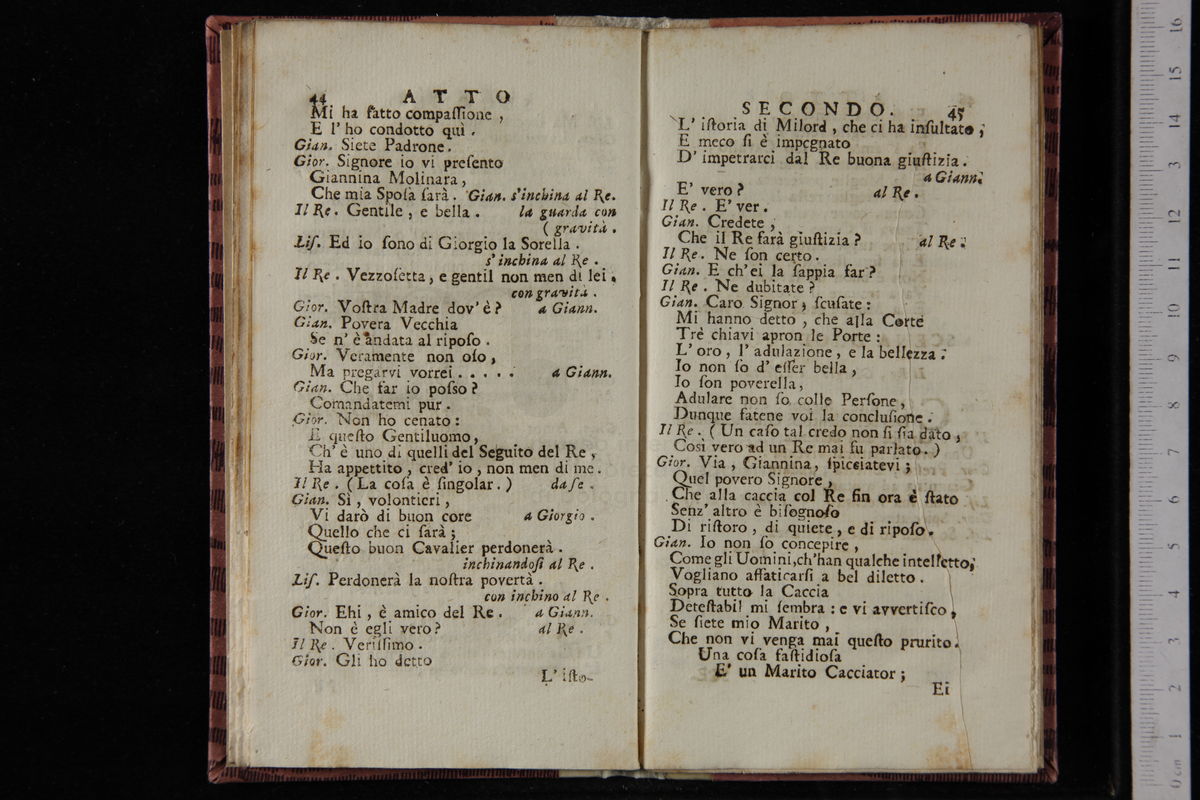 44 ATTO
Mi ha fatto compaſſione ,
E l' ho condotto quì .
Gian. Siete Padrone.
Gior. Signore io vi preſento
Giannina Molinara,
Che mia Spoſa ſarà. Gian. s'inchina al Re.
Il Re. Gentile, e bella . la guarda con
( gravità .
Liſ. Ed io ſono di Giorgio la Sorella .
s' inchina al Re .
Il Re . Vezzoſetta, e gentil non men di lei .
con gravità .
Gior. Voſtra Madre dov' è? a Giann.
Gian. Povera Vecchia
Se n' è andata al ripoſo .
Gior. Veramente non oſo,
Ma pregarvi vorrei . . . . . a Giann.
Gian. Che far io poſſo?
Comandatemi pur .
Gior. Non ho cenato :
E queſto Gentiluomo,
Ch' è uno di quelli del Seguito del Re,
Ha appettito, cred' io, non men di me.
Il Re . (La coſa è ſingolar. ) da ſe .
Gian. Sì, volontieri,
Vi darò di buon core a Giorgio .
Quello che ci ſarà;
Queſto buon Cavalier perdonerà .
inchinandoſi al Re .
Liſ. Perdonerà la noſtra povertà .
con inchino al Re .
Gior. Ehi, è amico del Re . a Giann.
Non è egli vero? al Re .
Il Re . Veriſſimo .
Gior. Gli ho detto
L' iſto-
SECONDO. 45
L' iſtoria di Milord, che ci ha inſultato ;
E meco ſi è impegnato
D' impetrarci dal Re buona giuſtizia .
a Giann.
E' vero? al Re .
Il Re . E' ver.
Gian. Credete,
Che il Re farà giuſtizia? al Re .
Il Re. Ne ſon certo.
Gian. E ch' ei la ſappia far?
Il Re . Ne dubitate?
Gian. Caro Signor, ſcuſate :
Mi hanno detto, che alla Corte
Trè chiavi apron le Porte :
L' oro, l' adulazione, e la bellezza .
Io non ſo d' eſſer bella,
Io ſon poverella,
Adulare non ſo colle Perſone,
Dunque fatene voi la concluſione .
Il Re . ( Un caſo tal credo non ſi ſia dato,
Così vero ad un Re mai fu parlato. )
Gior. Via, Giannina, ſpicciatevi ;
Quel povero Signore,
Che alla caccia col Re fin ora è ſtato
Senz' altro è biſognoſo
Di riſtoro, di quiete, e di ripoſo .
Gian. Io non ſo concepire,
Come gli Uomini, ch'han qualche intelletto,
Vogliano affaticarſi a bel diletto .
Sopra tutto la Caccia
Deteſtabil mi ſembra : e vi avvertiſco,
Se ſiete mio Marito,
Che non vi venga mai queſto prurito.
Una coſa faſtidioſa
E' un Marito Cacciator ;
Ei
16
15
14
13
12
11
10
9
8
7
6
5
4
3
2
1
0 cm